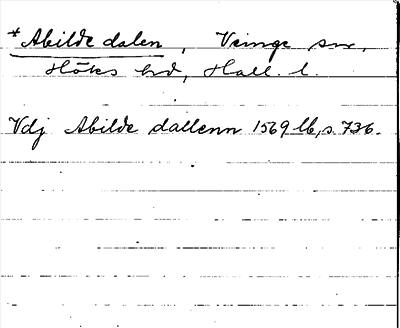 *Abilde dalen, Veinge sn,
Höks hd, Hall. l.
Vdj Abilde dallenn 1569 lb, s. 736.